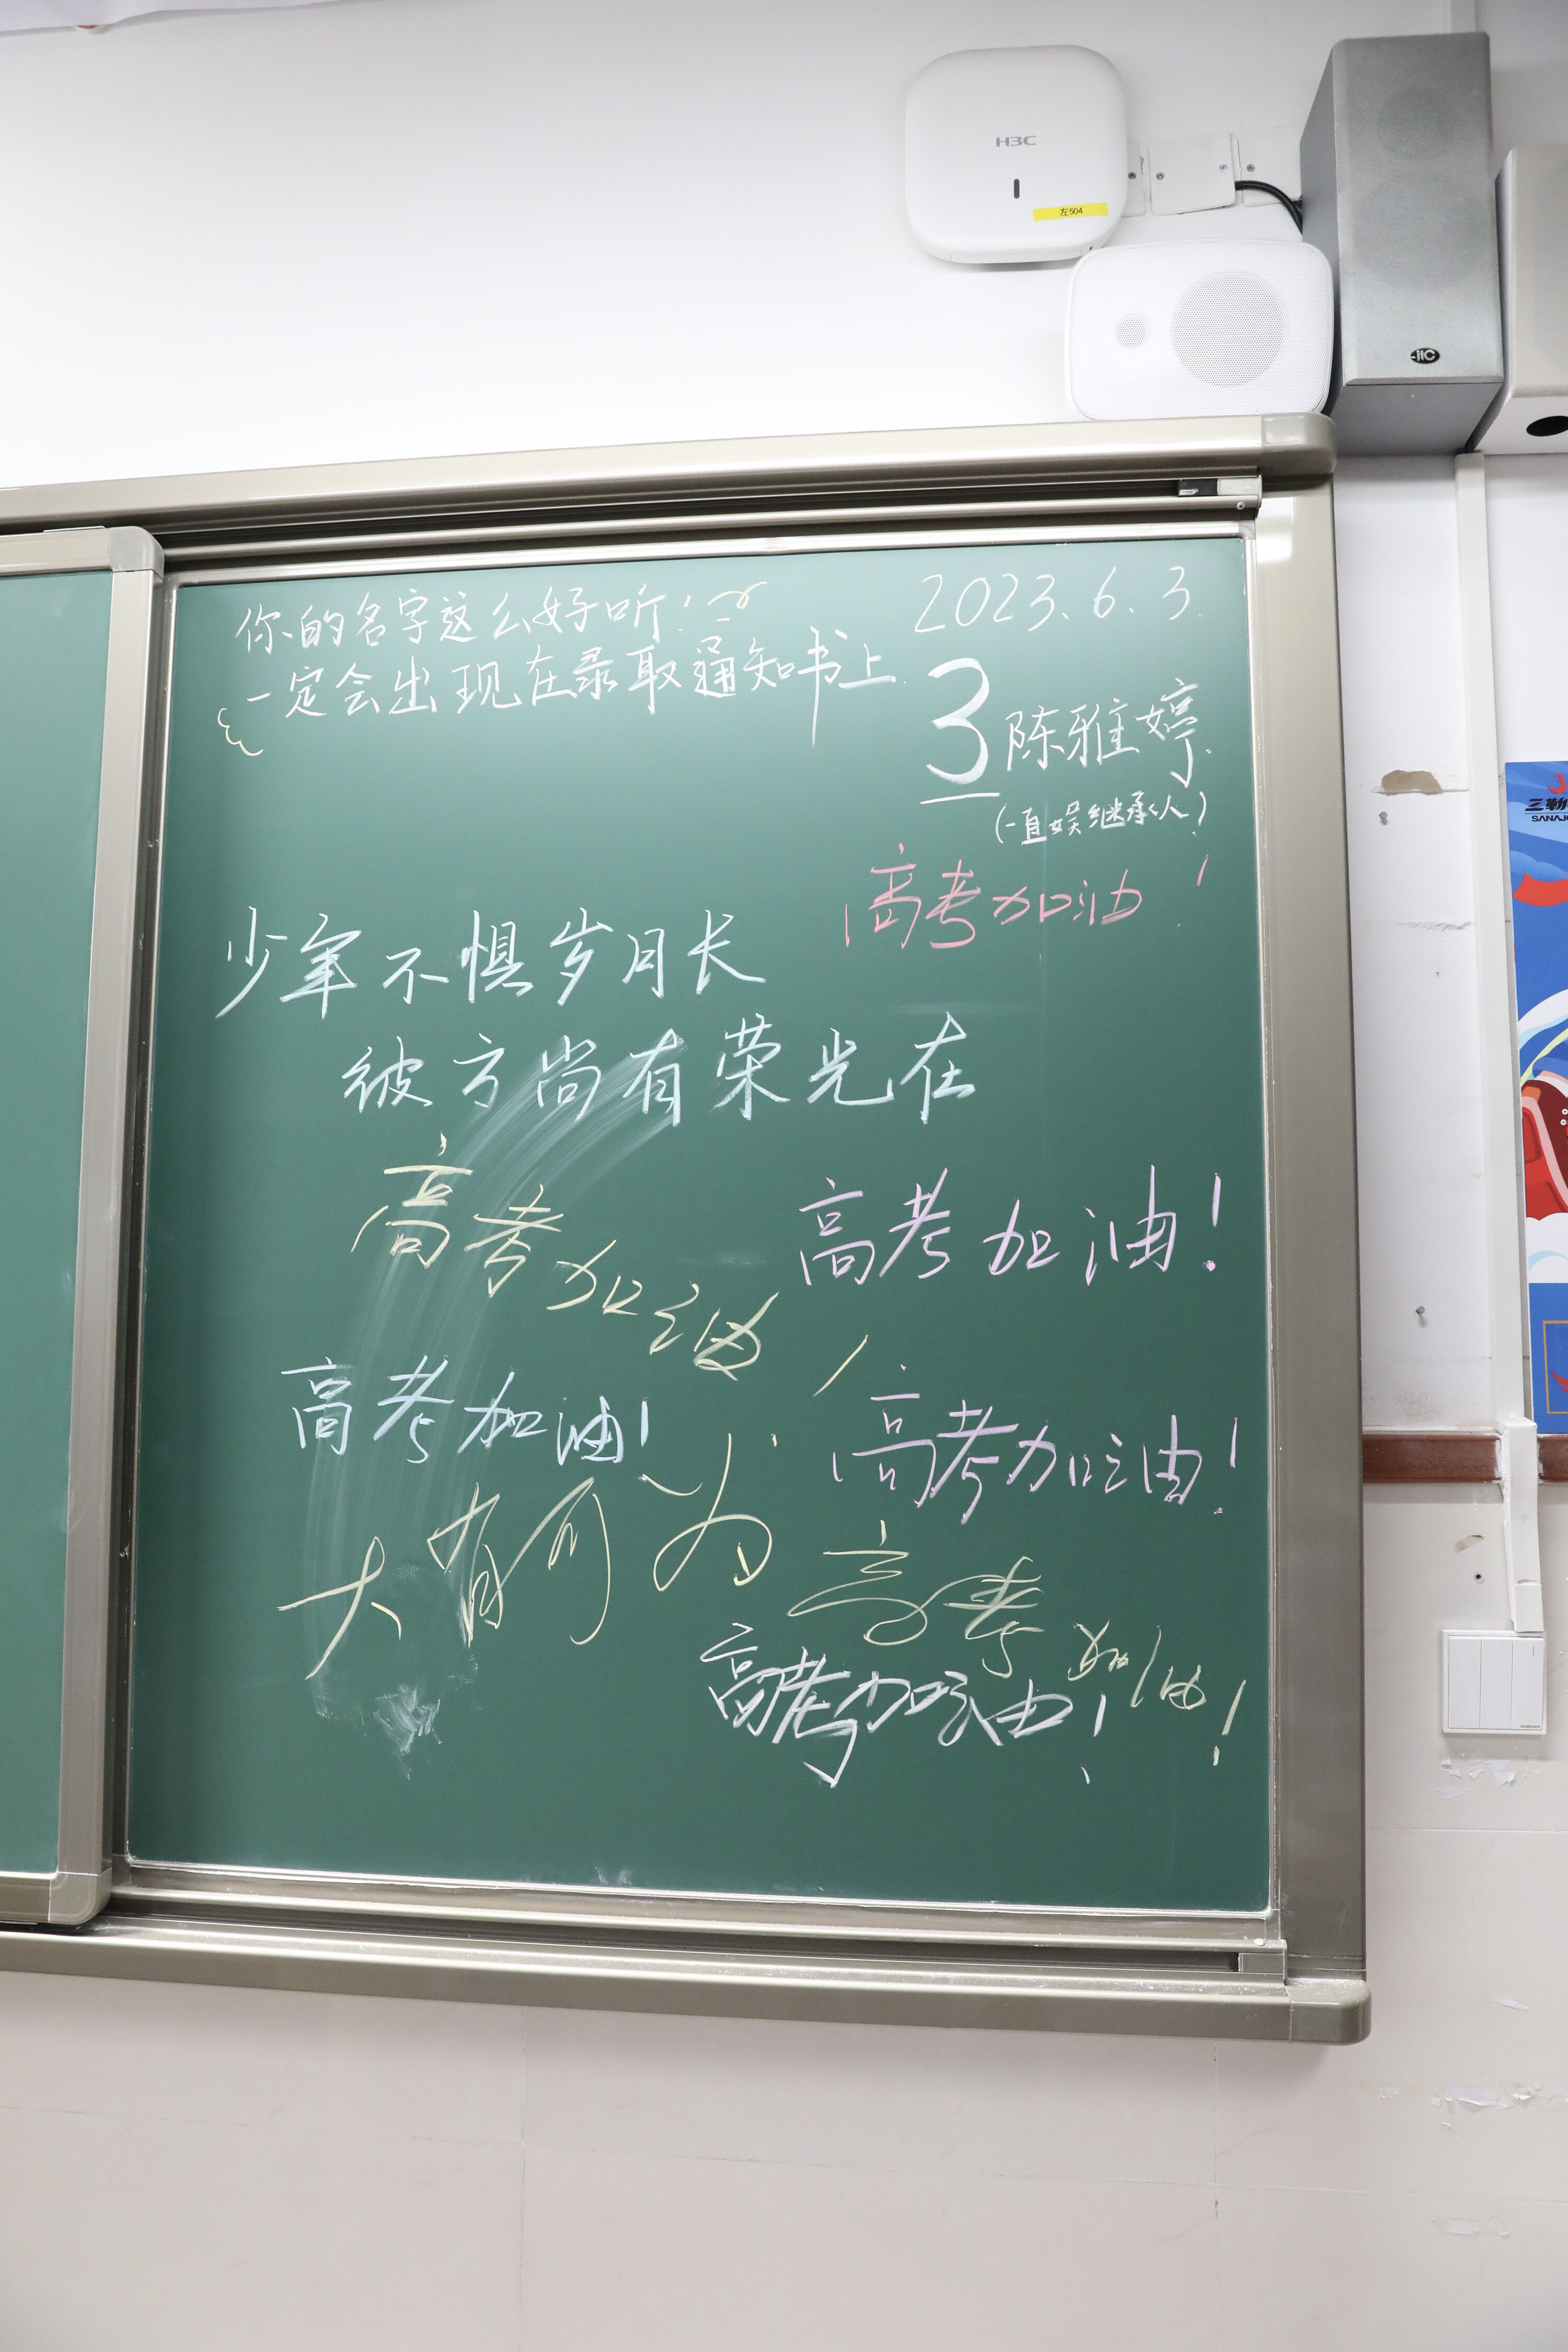 H3C
左504
JTC
你的名字这么好听!
一定会出现在录取通知书上
2023.6.3.
3
陈雅婷
(一直娱继承人)
高考加油!
少年不惧岁月长
彼方尚有荣光在
高考加油!
高考加油!
高考加油!
高考加油!
大有可为
高考加油!
高考加油!